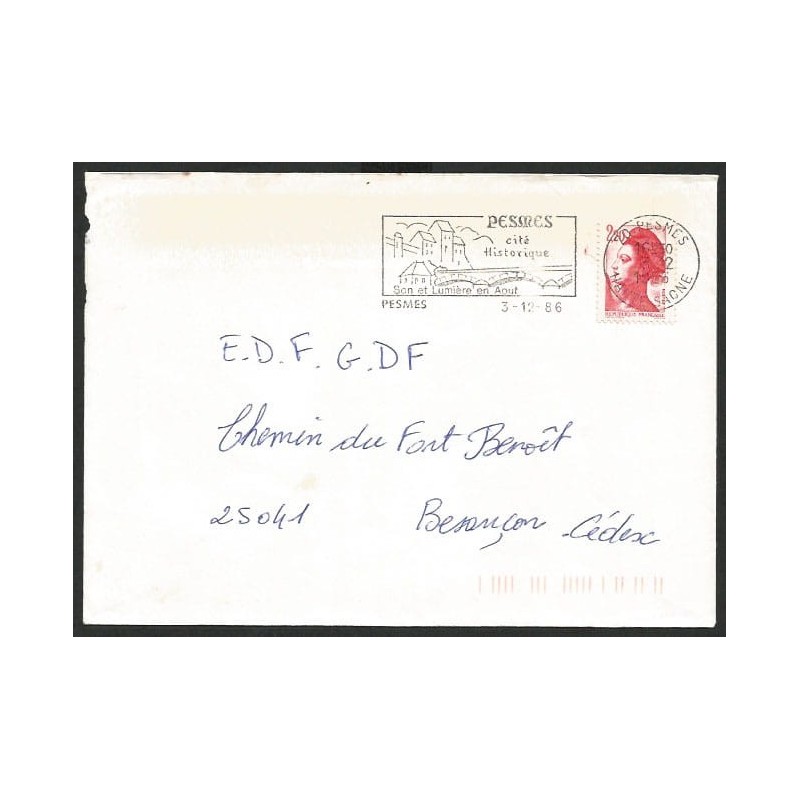 PESMES
cité
Historique
Son et Lumière en Aout
PESMES 3-12-86
PESMES
2,20
REPUBLIQUE FRANÇAISE
E.D.F. G.DF
Chemin du Fort Benoît
25041 Besançon Cédex